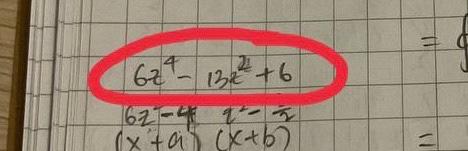 6z⁴ - 13z² + 6 = 
6z² - 4 z² - 
(x + a) (x + b) =